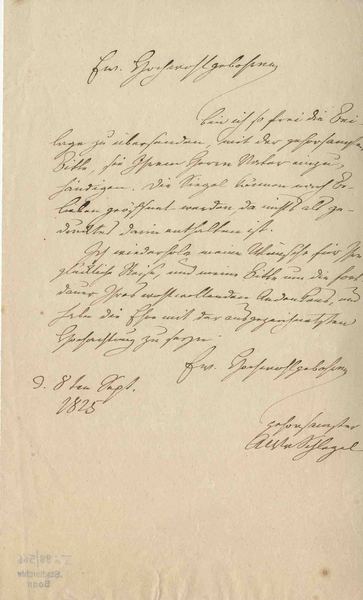 Ew. Hochwohlgebohren
bin ich so frei die Bei-
lage zu übersenden, mit der gehorsamsten
Bitte, sie Ihrem Herrn Vater einzu-
händigen. Die Siegel können nach Be-
lieben geöffnet werden da nichts als ge-
drucktes darin enthalten ist.
Ich wiederhole meine Wünsche für Ihre
glückliche Reise, und meine Bitte um die Fort-
dauer Ihres wohlwollenden Andenkens, und
habe die Ehre mit der ausgezeichnetsten
Hochachtung zu seyn
Ew. Hochwohlgebohren
d. 8ten Sept.
1825
gehorsamster
AWvSchlegel
Bonn